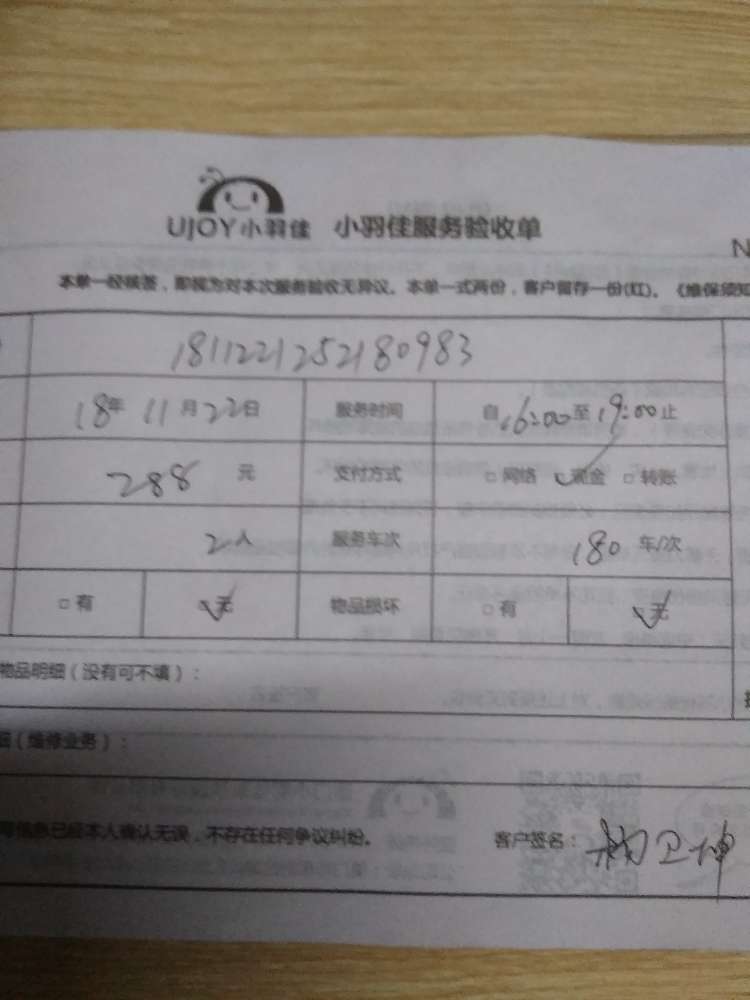 UJOY小羽佳 小羽佳服务验收单
N
本单一经候签，即视为对本次服务验收无异议。本单一式两份，客户留存一份(红)。《维保须知
181122125218098​3
18年 11月22日 服务时间 自16:00至19:00止
288 元 支付方式 □网络 ✓现金 □转账
2人 服务车次 180 车/次
□有 ✓无 物品损坏 □有 ✓无
物品明细（没有可不填）：
（维修业务）：
信息已经本人确认无误，不存在任何争议纠纷。 客户签名：杨卫坤